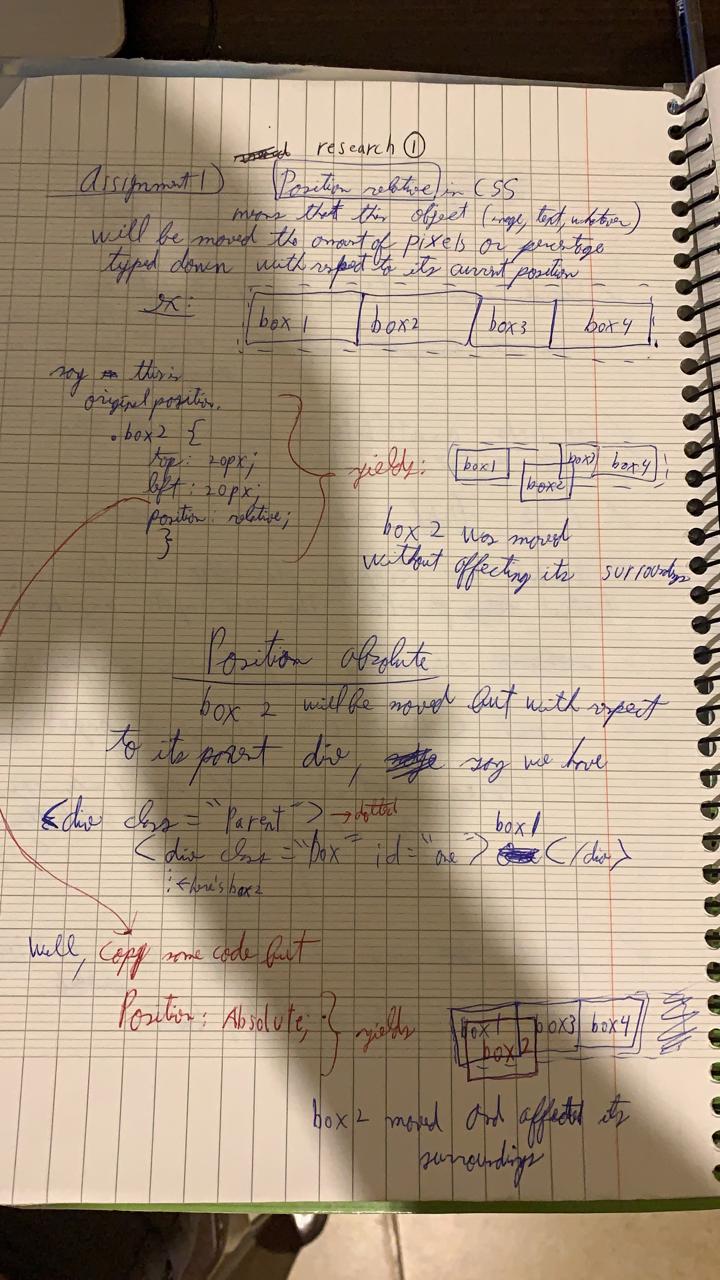 research ①
Assignment 1) Position relative in CSS
means that this object (image, text, whatever)
will be moved the amount of pixels or percentage
typed down with respect to its current position
ex:
box 1 box2 box3 box4
say this is
original position.
.box2 {
top: 20px;
left: 20px;
position: relative;
}
yields:
box1 box2 box3 box4
box 2 was moved
without affecting its surroundings
Position absolute
box 2 will be moved but with respect
to its parent div, say we have
<div class = "Parent"> → dotted
<div class = "box" id = "one"> box1 </div>
⋮ ← here's box2
Well, copy same code but
Position: Absolute; } yields
box1 box2 box3 box4
box 2 moved and affected its
surroundings